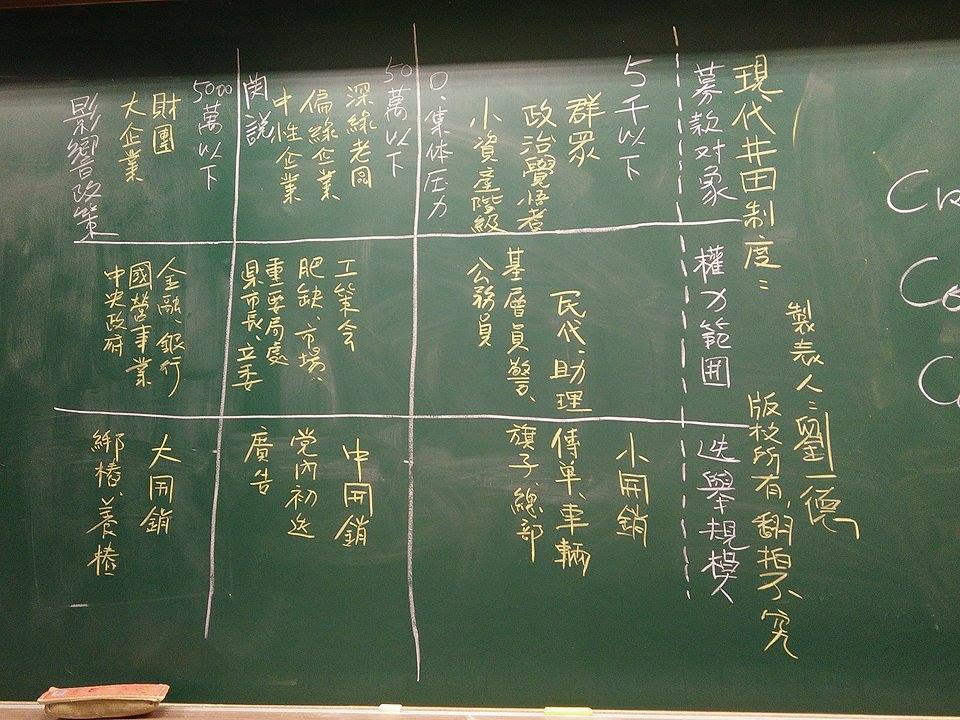 現代井田制度：
製表人：劉一德
版校所有，翻拍不究
募款对象
權力範囲
选舉規模
5千以下
群眾
政治覺悟者
小資產階級
0.集体压力
民代、助理
基層員警、
公務員
小開銷
傳单、車輛
旗子、總部
50萬以下
深綠老闆
偏綠企業
中性企業
関説
工策会
肥缺、市場、
重要局處
県市長、立委
中開銷
党内初选
廣告
5000萬以下
財團
大企業
影響政策
金融銀行
國營事業
中央政府
大開銷
綁樁、養樁
C
C
C